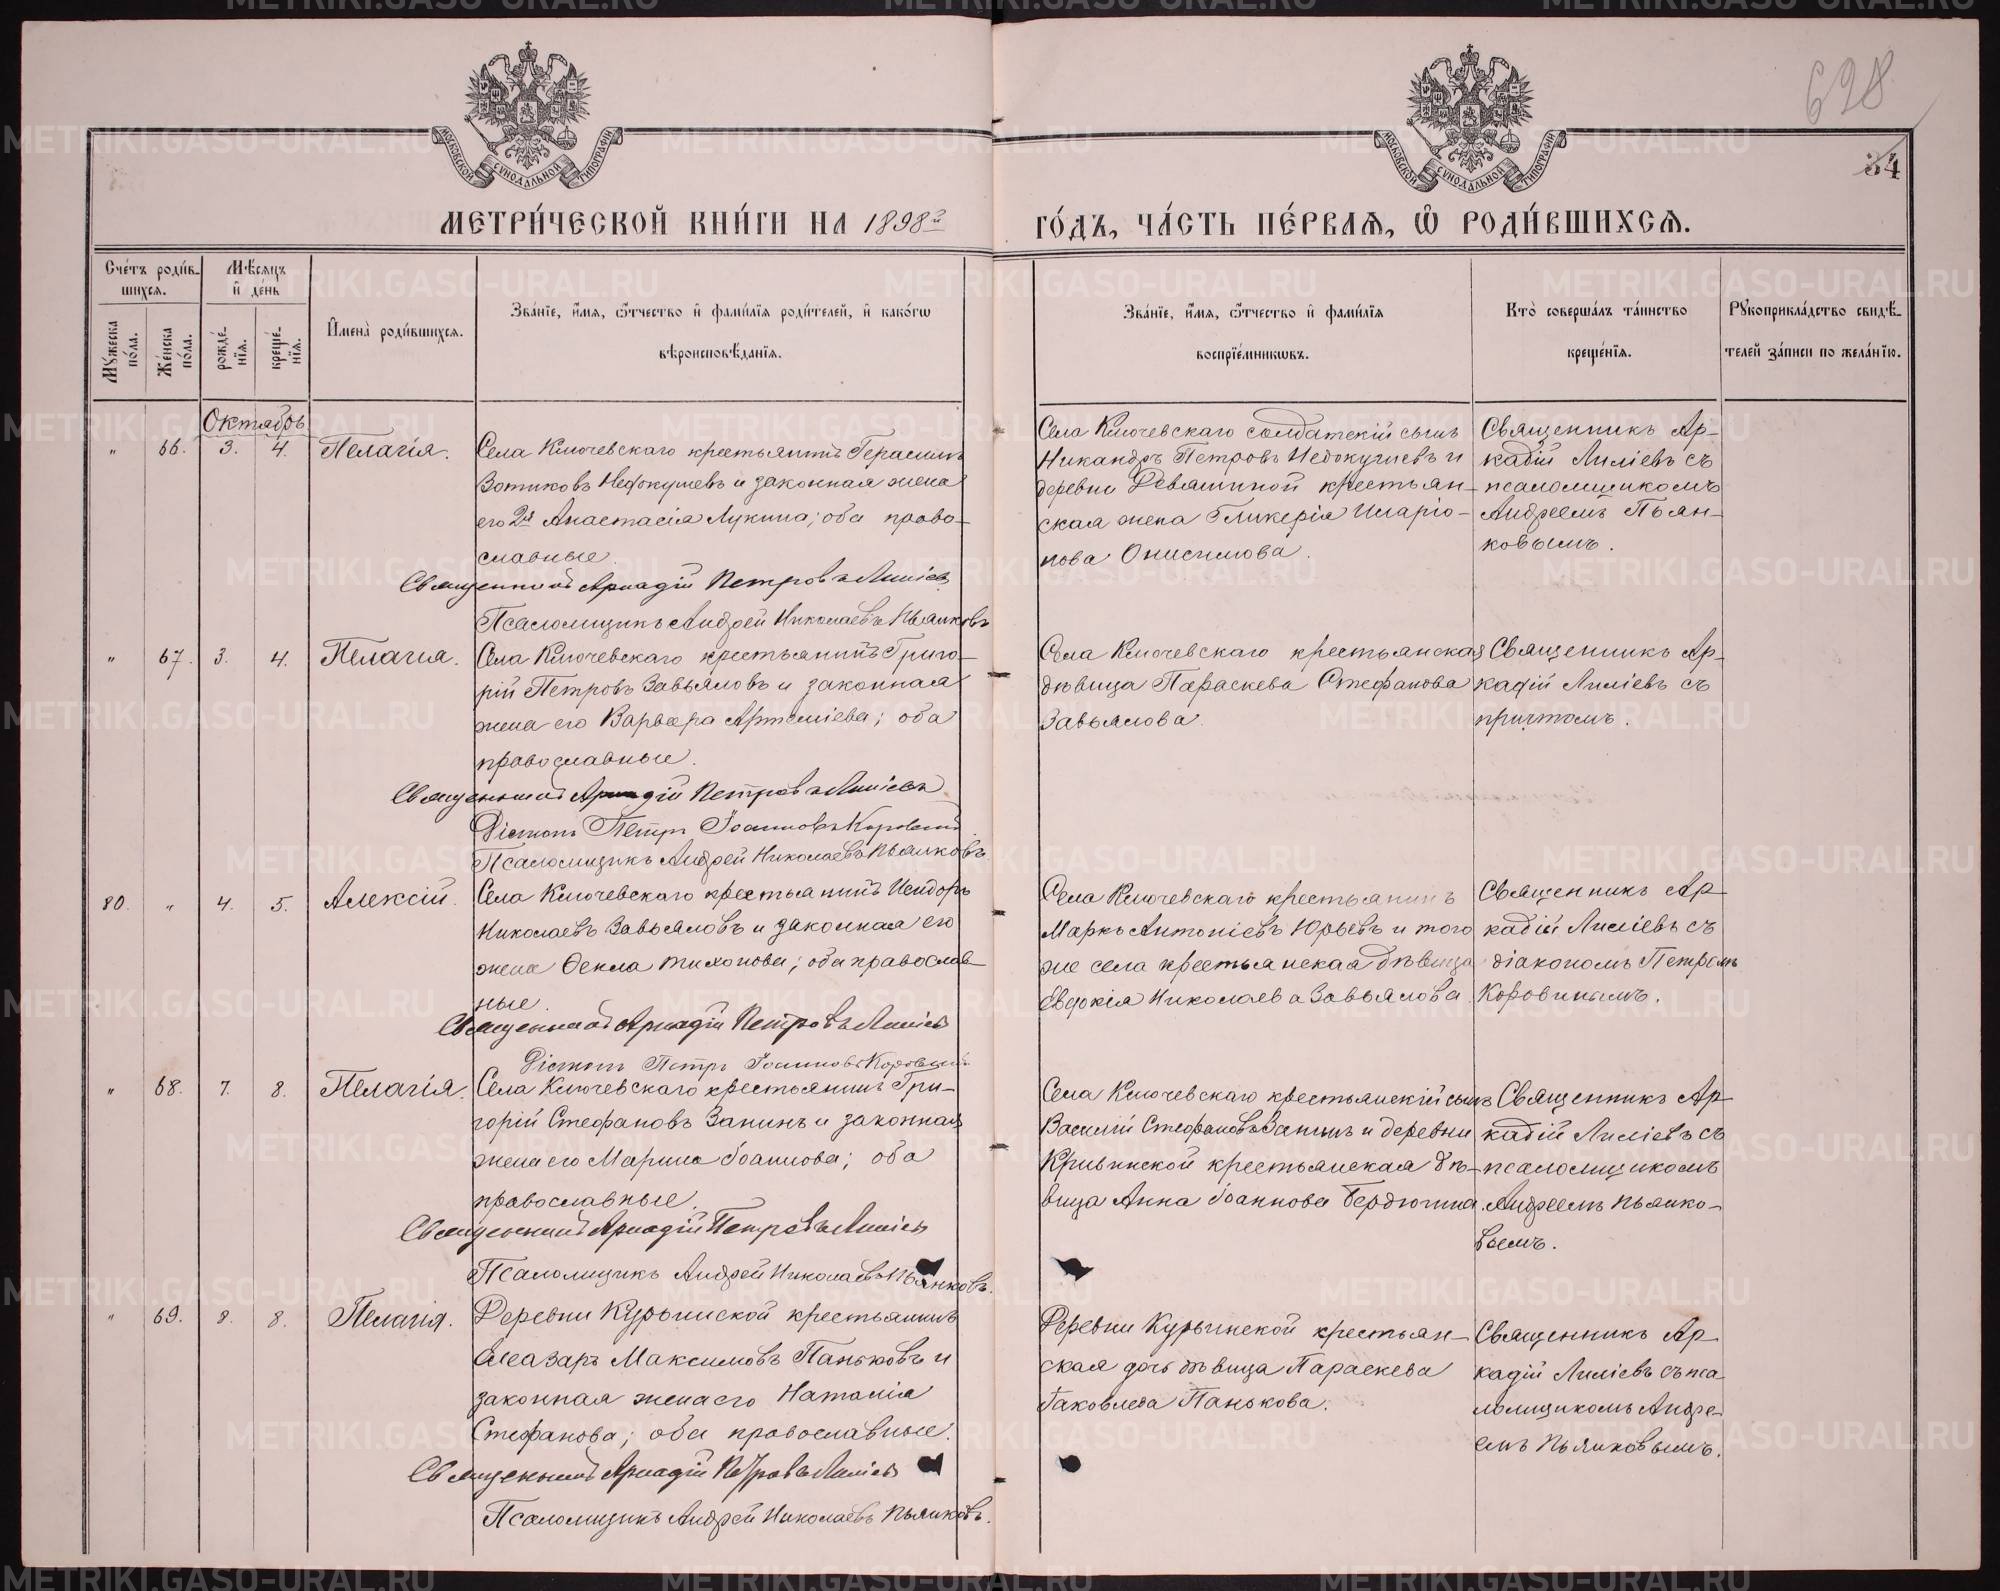 628
34
МОСКОВСКОЙ СѴНОДАЛЬНОЙ ТИПОГРАФІИ
МОСКОВСКОЙ СѴНОДАЛЬНОЙ ТИПОГРАФІИ
МЕТРИ́ЧЕСКОЙ КНИ́ГИ НА 1898й
ГО́ДЪ, ЧА́СТЬ ПЕ́РВАЯ, Ѽ РОДИ́ВШИХСЯ.
Сче́тъ роди́в-
шихся.
Мѣ́сяцъ
и҆ де́нь
Мꙋ́жеска по́ла.
Же́нска по́ла.
рожде́-
нїя.
креще́-
нїя.
И҆мена̀ роди́вшихся.
Зва́нїе, и҆́мя, ѻ҆́тчество и҆ фами́лїя роди́телей, и҆ како́гѡ
вѣроисповѣ́данїя.
Зва́нїе, и҆́мя, ѻ҆́тчество и҆ фами́лїя
воспрїе́мникѡвъ.
Кто̀ соверша́лъ та́инство
креще́нїя.
Рꙋкоприкла́дство свидѣ́-
телей за́писи по жела́нїю.
Октябрь
" 66. 3. 4. Пелагія.
Села Ключевскаго крестьянинъ Герасимъ
Зотиковъ Недокушевъ и законная жена
его 2я Анастасія Лукина; оба право-
славные.
Священникъ Аркадій Петровъ Лиліевъ
Псаломщикъ Андрей Николаевъ Пьянковъ
Села Ключевскаго солдатскій сынъ
Никандръ Петровъ Недокушевъ и
деревни Девяшиной крестьян-
ская жена Гликерія Иларіо-
нова Онисимова.
Священникъ Ар-
кадій Лиліевъ съ
псаломщикомъ
Андреемъ Пьян-
ковымъ.
" 67. 3. 4. Пелагія.
Села Ключевскаго крестьянинъ Григо-
рій Петровъ Завьяловъ и законная
жена его Варвара Артеміева; оба
православные.
Священникъ Аркадій Петровъ Лиліевъ
Діаконъ Петръ Іоанновъ Коровинъ
Псаломщикъ Андрей Николаевъ Пьянковъ
Села Ключевскаго крестьянская
дѣвица Параскева Стефанова
Завьялова.
Священникъ Ар-
кадій Лиліевъ съ
причтомъ.
80. " 4. 5. Алексій.
Села Ключевскаго крестьянинъ Исидоръ
Николаевъ Завьяловъ и законная его
жена Ѳекла Тихонова; оба православ-
ные.
Священникъ Аркадій Петровъ Лиліевъ
Діаконъ Петръ Іоанновъ Коровинъ
Села Ключевскаго крестьянинъ
Маркъ Антоніевъ Юрьевъ и того
же села крестьянская дѣвица
Евдокія Николаева Завьялова.
Священникъ Ар-
кадій Лиліевъ съ
діакономъ Петромъ
Коровинымъ.
" 68. 7. 8. Пелагія.
Села Ключевскаго крестьянинъ Гри-
горій Стефановъ Запинъ и законная
жена его Марина Іоаннова; оба
православные.
Священникъ Аркадій Петровъ Лиліевъ
Псаломщикъ Андрей Николаевъ Пьянковъ.
Села Ключевскаго крестьянскій сынъ
Василій Стефановъ Запинъ и деревни
Кривинской крестьянская дѣ-
вица Анна Іоаннова Бердюгина.
Священникъ Ар-
кадій Лиліевъ съ
псаломщикомъ
Андреемъ Пьянко-
вымъ.
" 69. 8. 8. Пелагія.
Деревни Курьинской крестьянинъ
Елеазаръ Максимовъ Паньковъ и
законная жена его Наталія
Стефанова; оба православные.
Священникъ Аркадій Петровъ Лиліевъ
Псаломщикъ Андрей Николаевъ Пьянковъ.
Деревни Курьинской крестьян-
ская дочь дѣвица Параскева
Іаковлева Панькова.
Священникъ Ар-
кадій Лиліевъ съ пса-
ломщикомъ Андре-
емъ Пьянковымъ.
METRIKI.GASO-URAL.RU